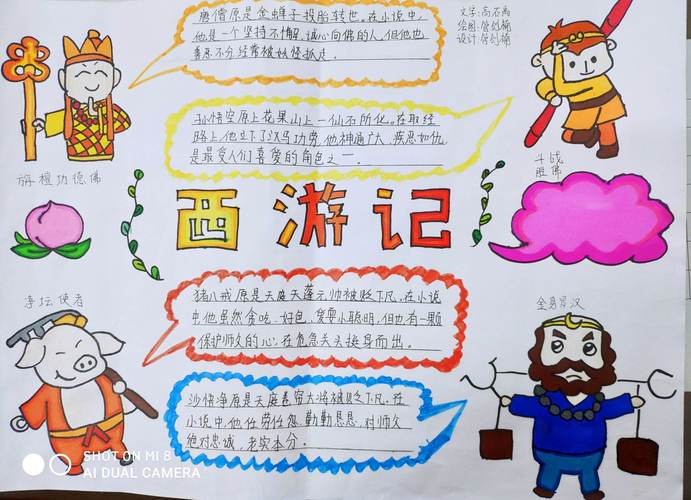 唐僧原是金蝉子投胎转世。在小说中,
他是一个坚持不懈、诚心向佛的人,但他也
善恶不分经常被妖怪抓走。
文字:
绘图:
设计:
孙悟空原是花果山上一仙石所化。在取经
路上,他立下了汗马功劳,他神通广大、疾恶如仇
是最受人们喜爱的角色之一。
旃檀功德佛
斗战
胜佛
西游记
净坛使者
猪八戒原是天庭天蓬元帅被贬下凡。在小说
中,他虽然贪吃、好色、爱耍小聪明,但也有一颗
保护师父的心,在危急关头挺身而出。
金身罗汉
沙悟净原是天庭卷帘大将被贬下凡。在
小说中,他任劳任怨、勤勤恳恳、对师父
绝对忠诚,老实本分。
SHOT ON MI 8
AI DUAL CAMERA